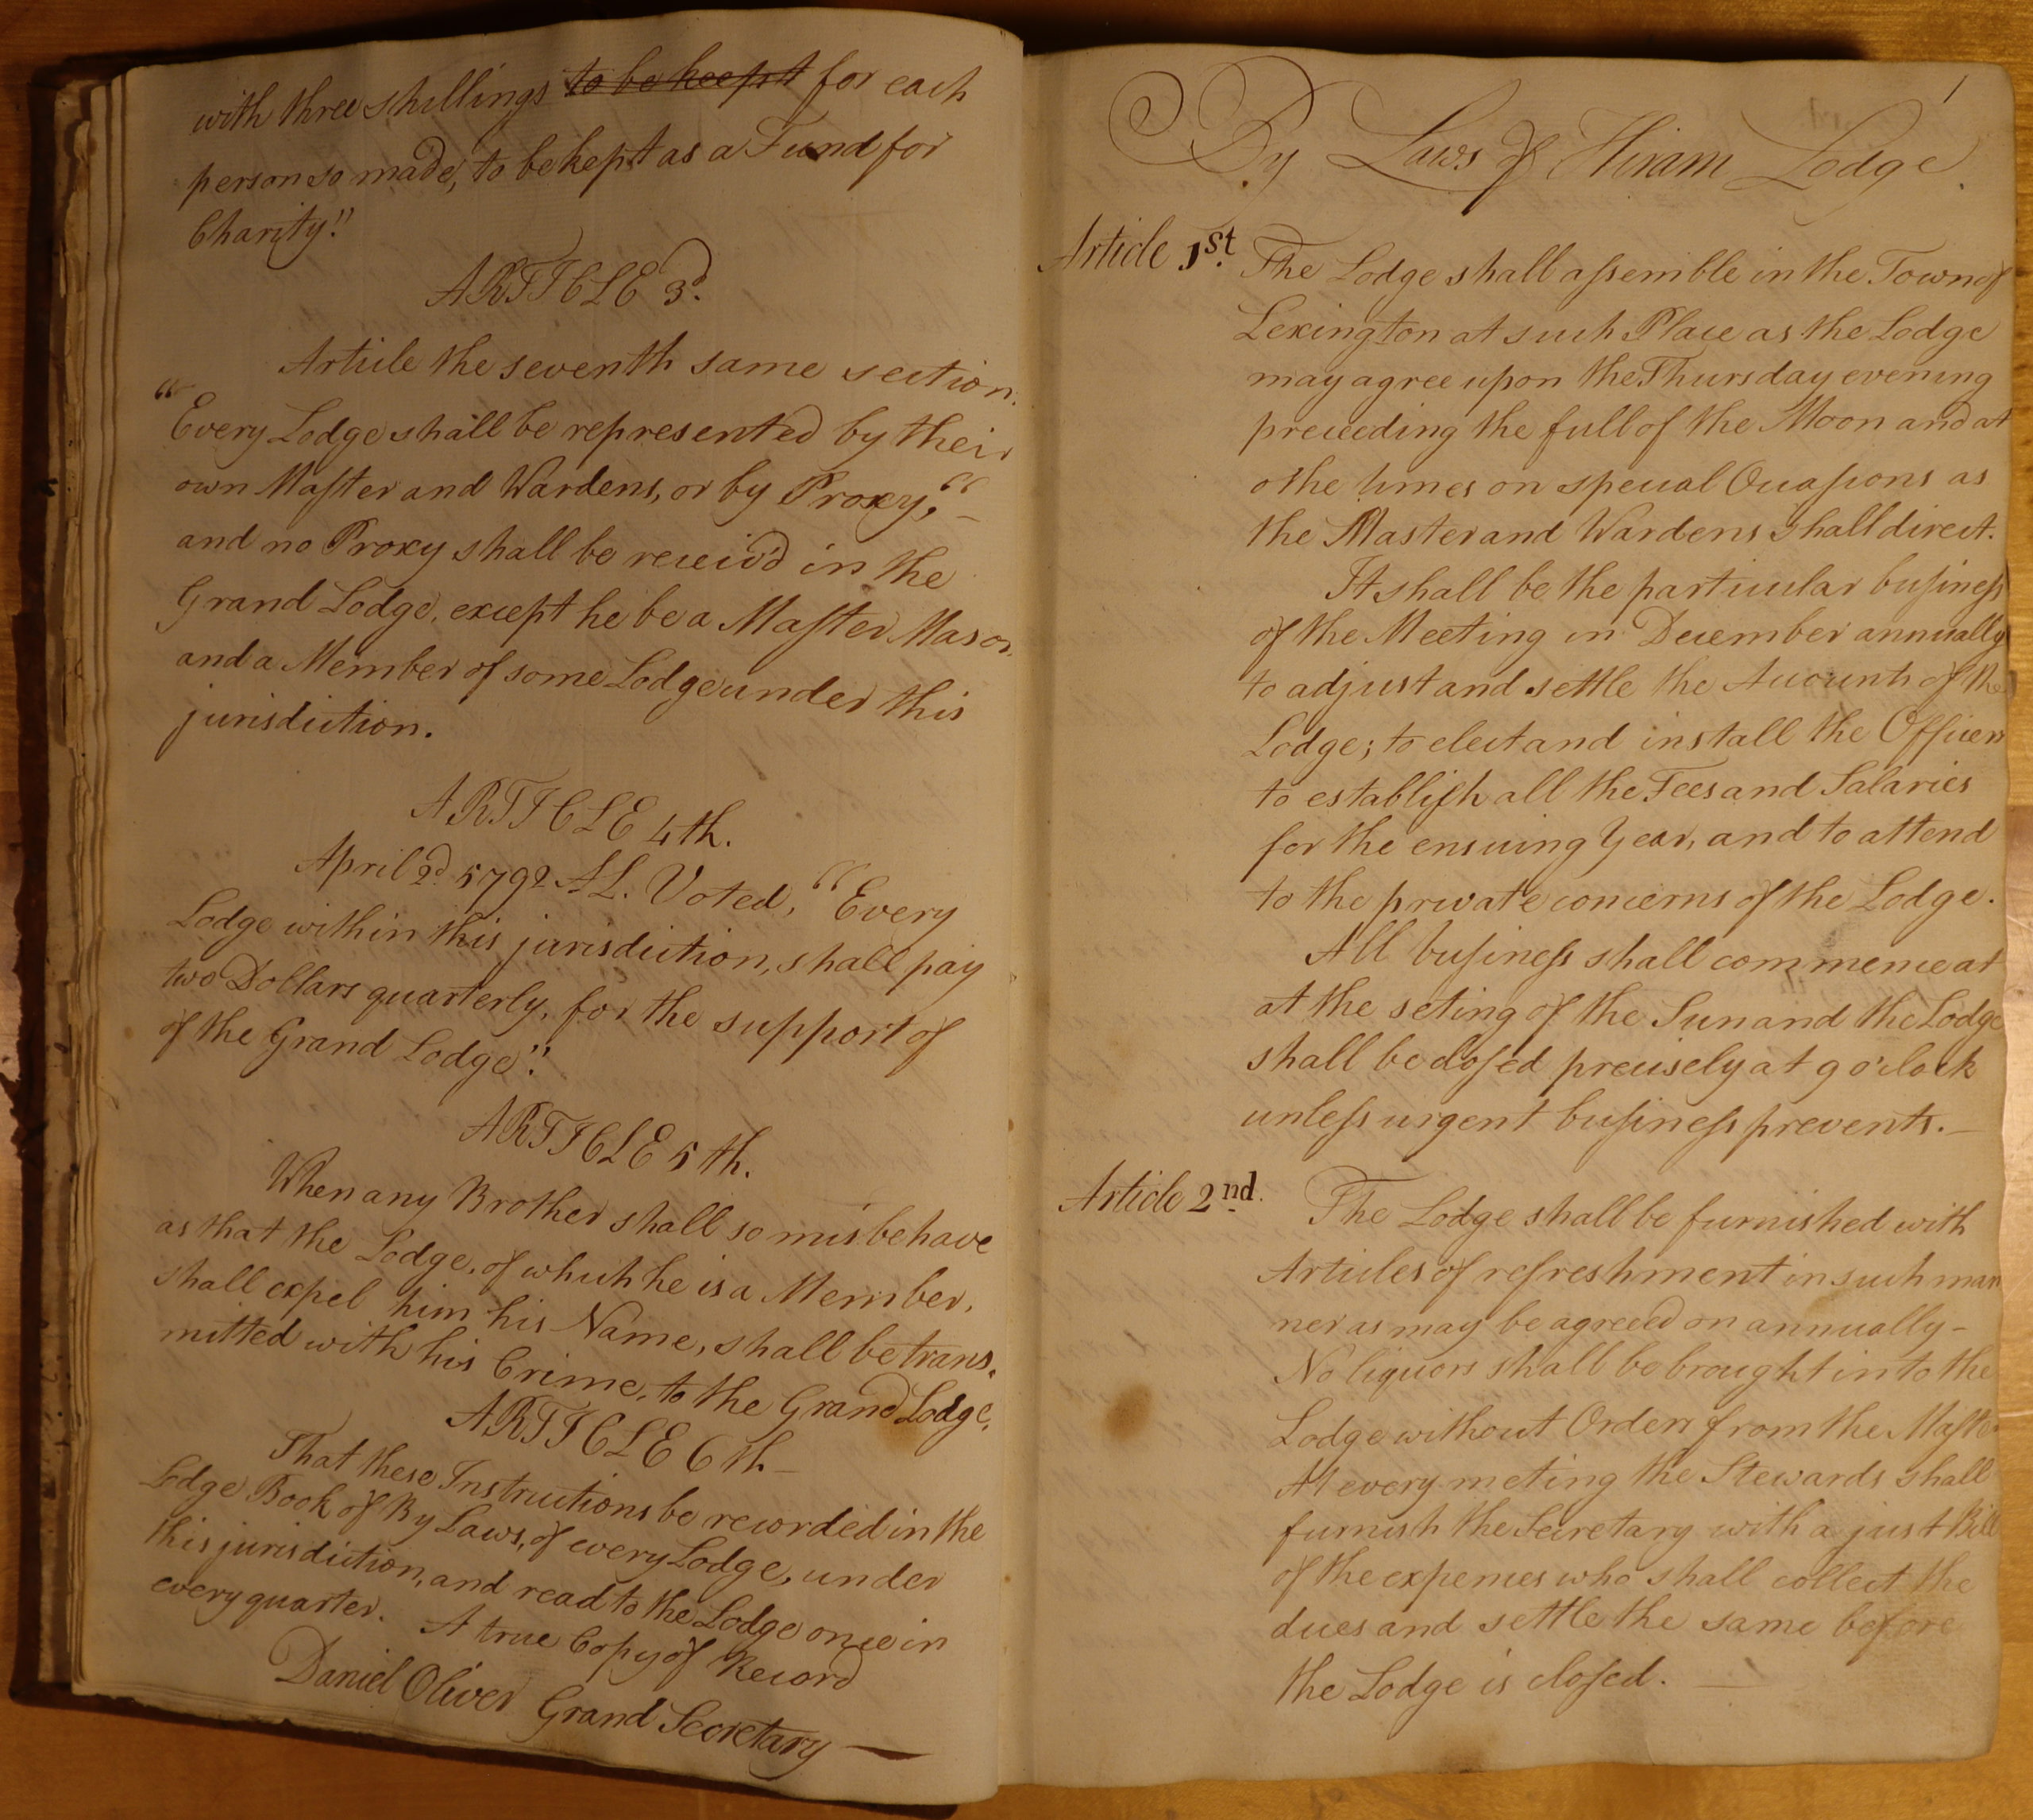 with three shillings to be keept for each
person so made, to be kept as a Fund for
Charity."
ARTICLE 3d.
Article the seventh same section.
"Every Lodge shall be represented by their
own Maſter and Wardens, or by Proxy," –
and no Proxy shall be receiv'd in the
Grand Lodge, except he be a Maſter Mason
and a Member of some Lodge under this
jurisdiction.
ARTICLE 4th.
April 2d 5792 AL. Voted, "Every
Lodge within this jurisdiction, shall pay
two Dollars quarterly, for the support of
of the Grand Lodge".
ARTICLE 5th.
When any Brother shall so misbehave
as that the Lodge, of which he is a Member,
shall expel him his Name, shall be trans-
mitted with his Crime, to the Grand Lodge.
ARTICLE 6th –
That these Instructions be recorded in the
Lodge Book of By Laws, of every Lodge, under
this jurisdiction, and read to the Lodge once in
every quarter. A true Copy of Record
Daniel Oliver Grand Secretary —
1
By Laws of Hiram Lodge.
Article 1st. The Lodge shall aſsemble in the Town of
Lexington at such Place as the Lodge
may agree upon the Thursday evening
preceeding the full of the Moon and at
othe times on special Occaſions as
the Master and Wardens shall direct.
It shall be the particular buſineſs
of the Meeting in December annually
to adjust and settle the Accounts of the
Lodge; to elect and install the Officers
to establiſh all the Fees and Salaries
for the ensuing Year, and to attend
to the private concerns of the Lodge.
All buſineſs shall commence at
at the seting of the Sun and the Lodge
shall be cloſed precisely at 9 o'clock
unleſs urgent buſineſs prevents. –
Article 2nd. The Lodge shall be furnished with
Articles of refreshment in such man
ner as may be agreed on annually –
No liquors shall be brought into the
Lodge without Orders from the Maſter
At every meting the Stewards shall
furnish the Secretary with a just Bill
of the expences who shall collect the
dues and settle the same before
the Lodge is cloſed. —